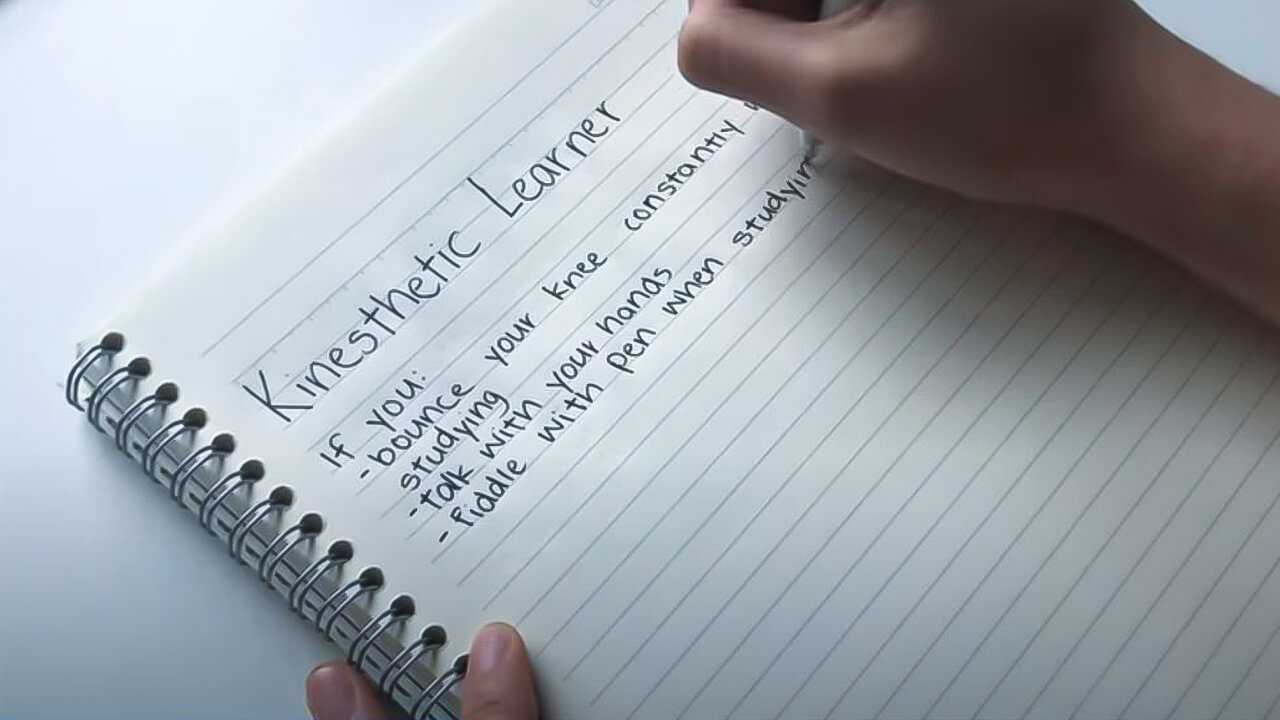 Kinesthetic Learner
If you:
- bounce your knee constantly
studying
- talk with your hands
- fiddle with pen when studyin